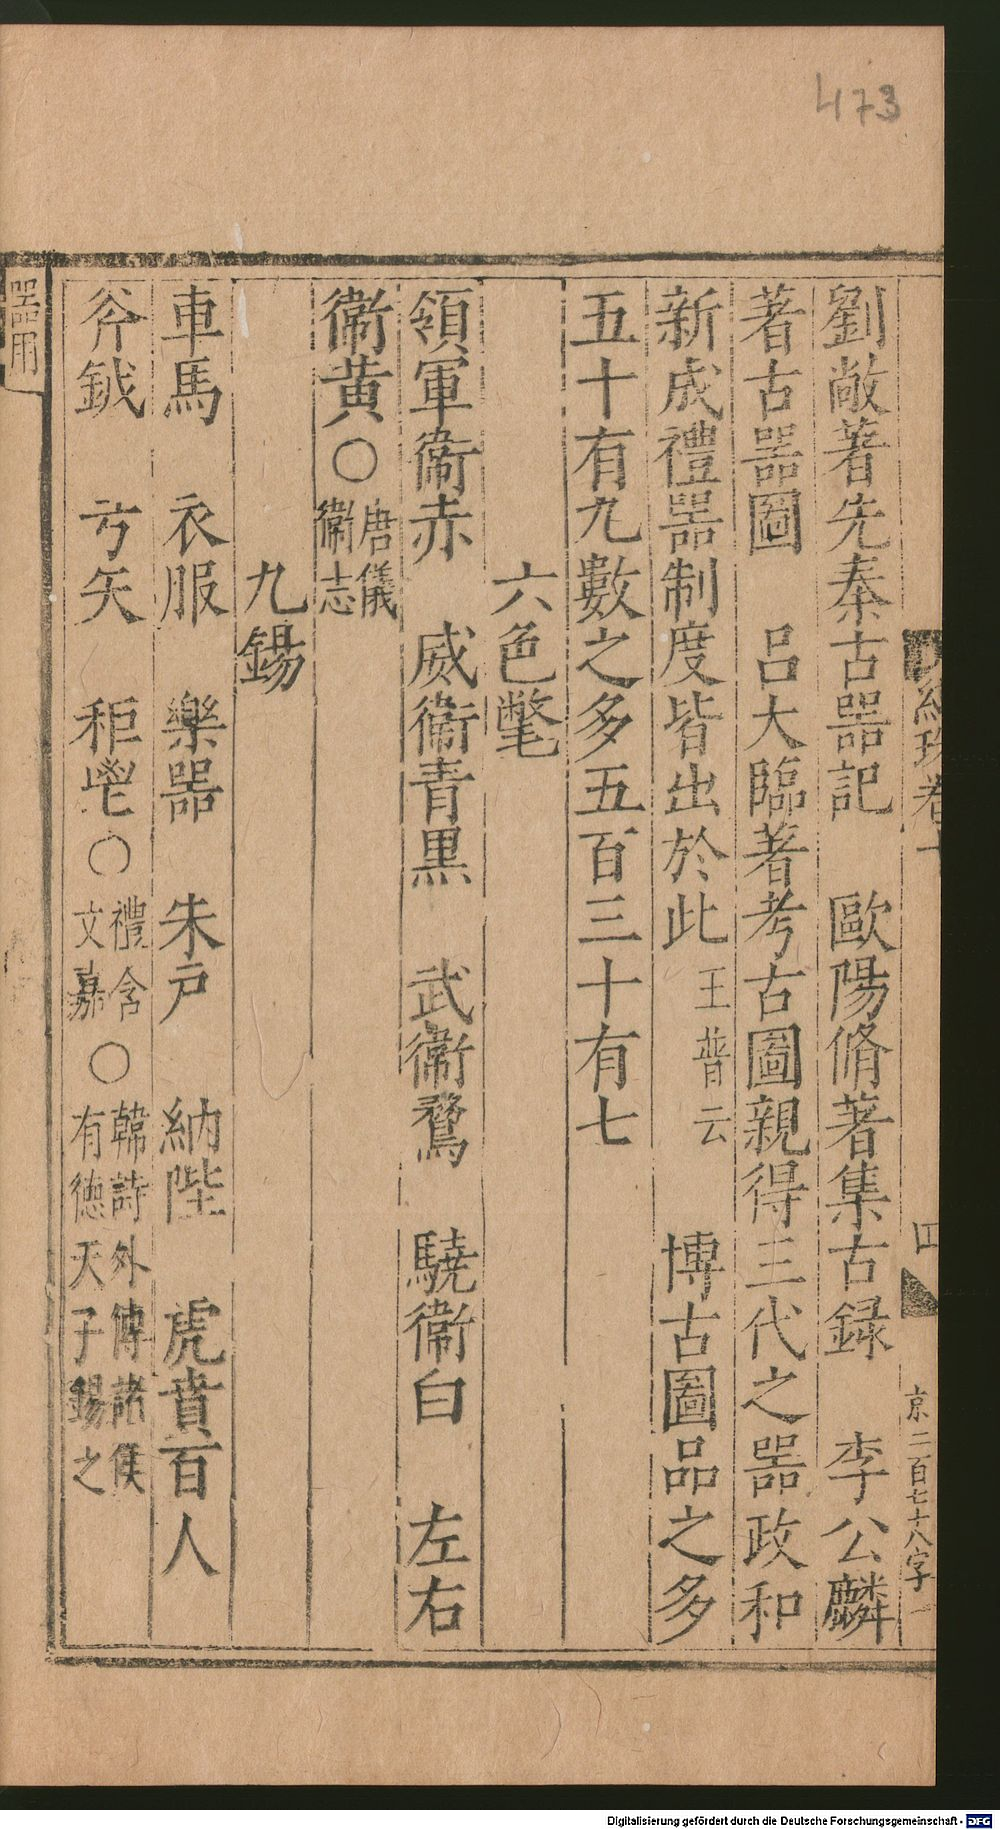 473
劉敞著先秦古器記　歐陽脩著集古録　李公麟
著古器圖　呂大臨著考古圖親得三代之器政和
新成禮器制度皆出於此王普云　博古圖品之多
五十有九數之多五百三十有七
六色氅
領軍衞赤　威衞青黒　武衞鶩　驍衞白　左右
衞黄〇唐儀衞志
九錫
車馬　衣服　樂器　朱戸　納陛　虎賁百人
斧鉞　弓矢　秬鬯〇禮含文嘉〇韓詩外傳諸侯有徳天子錫之
器用
四
京二百七十八字
Digitalisierung gefördert durch die Deutsche Forschungsgemeinschaft - DFG